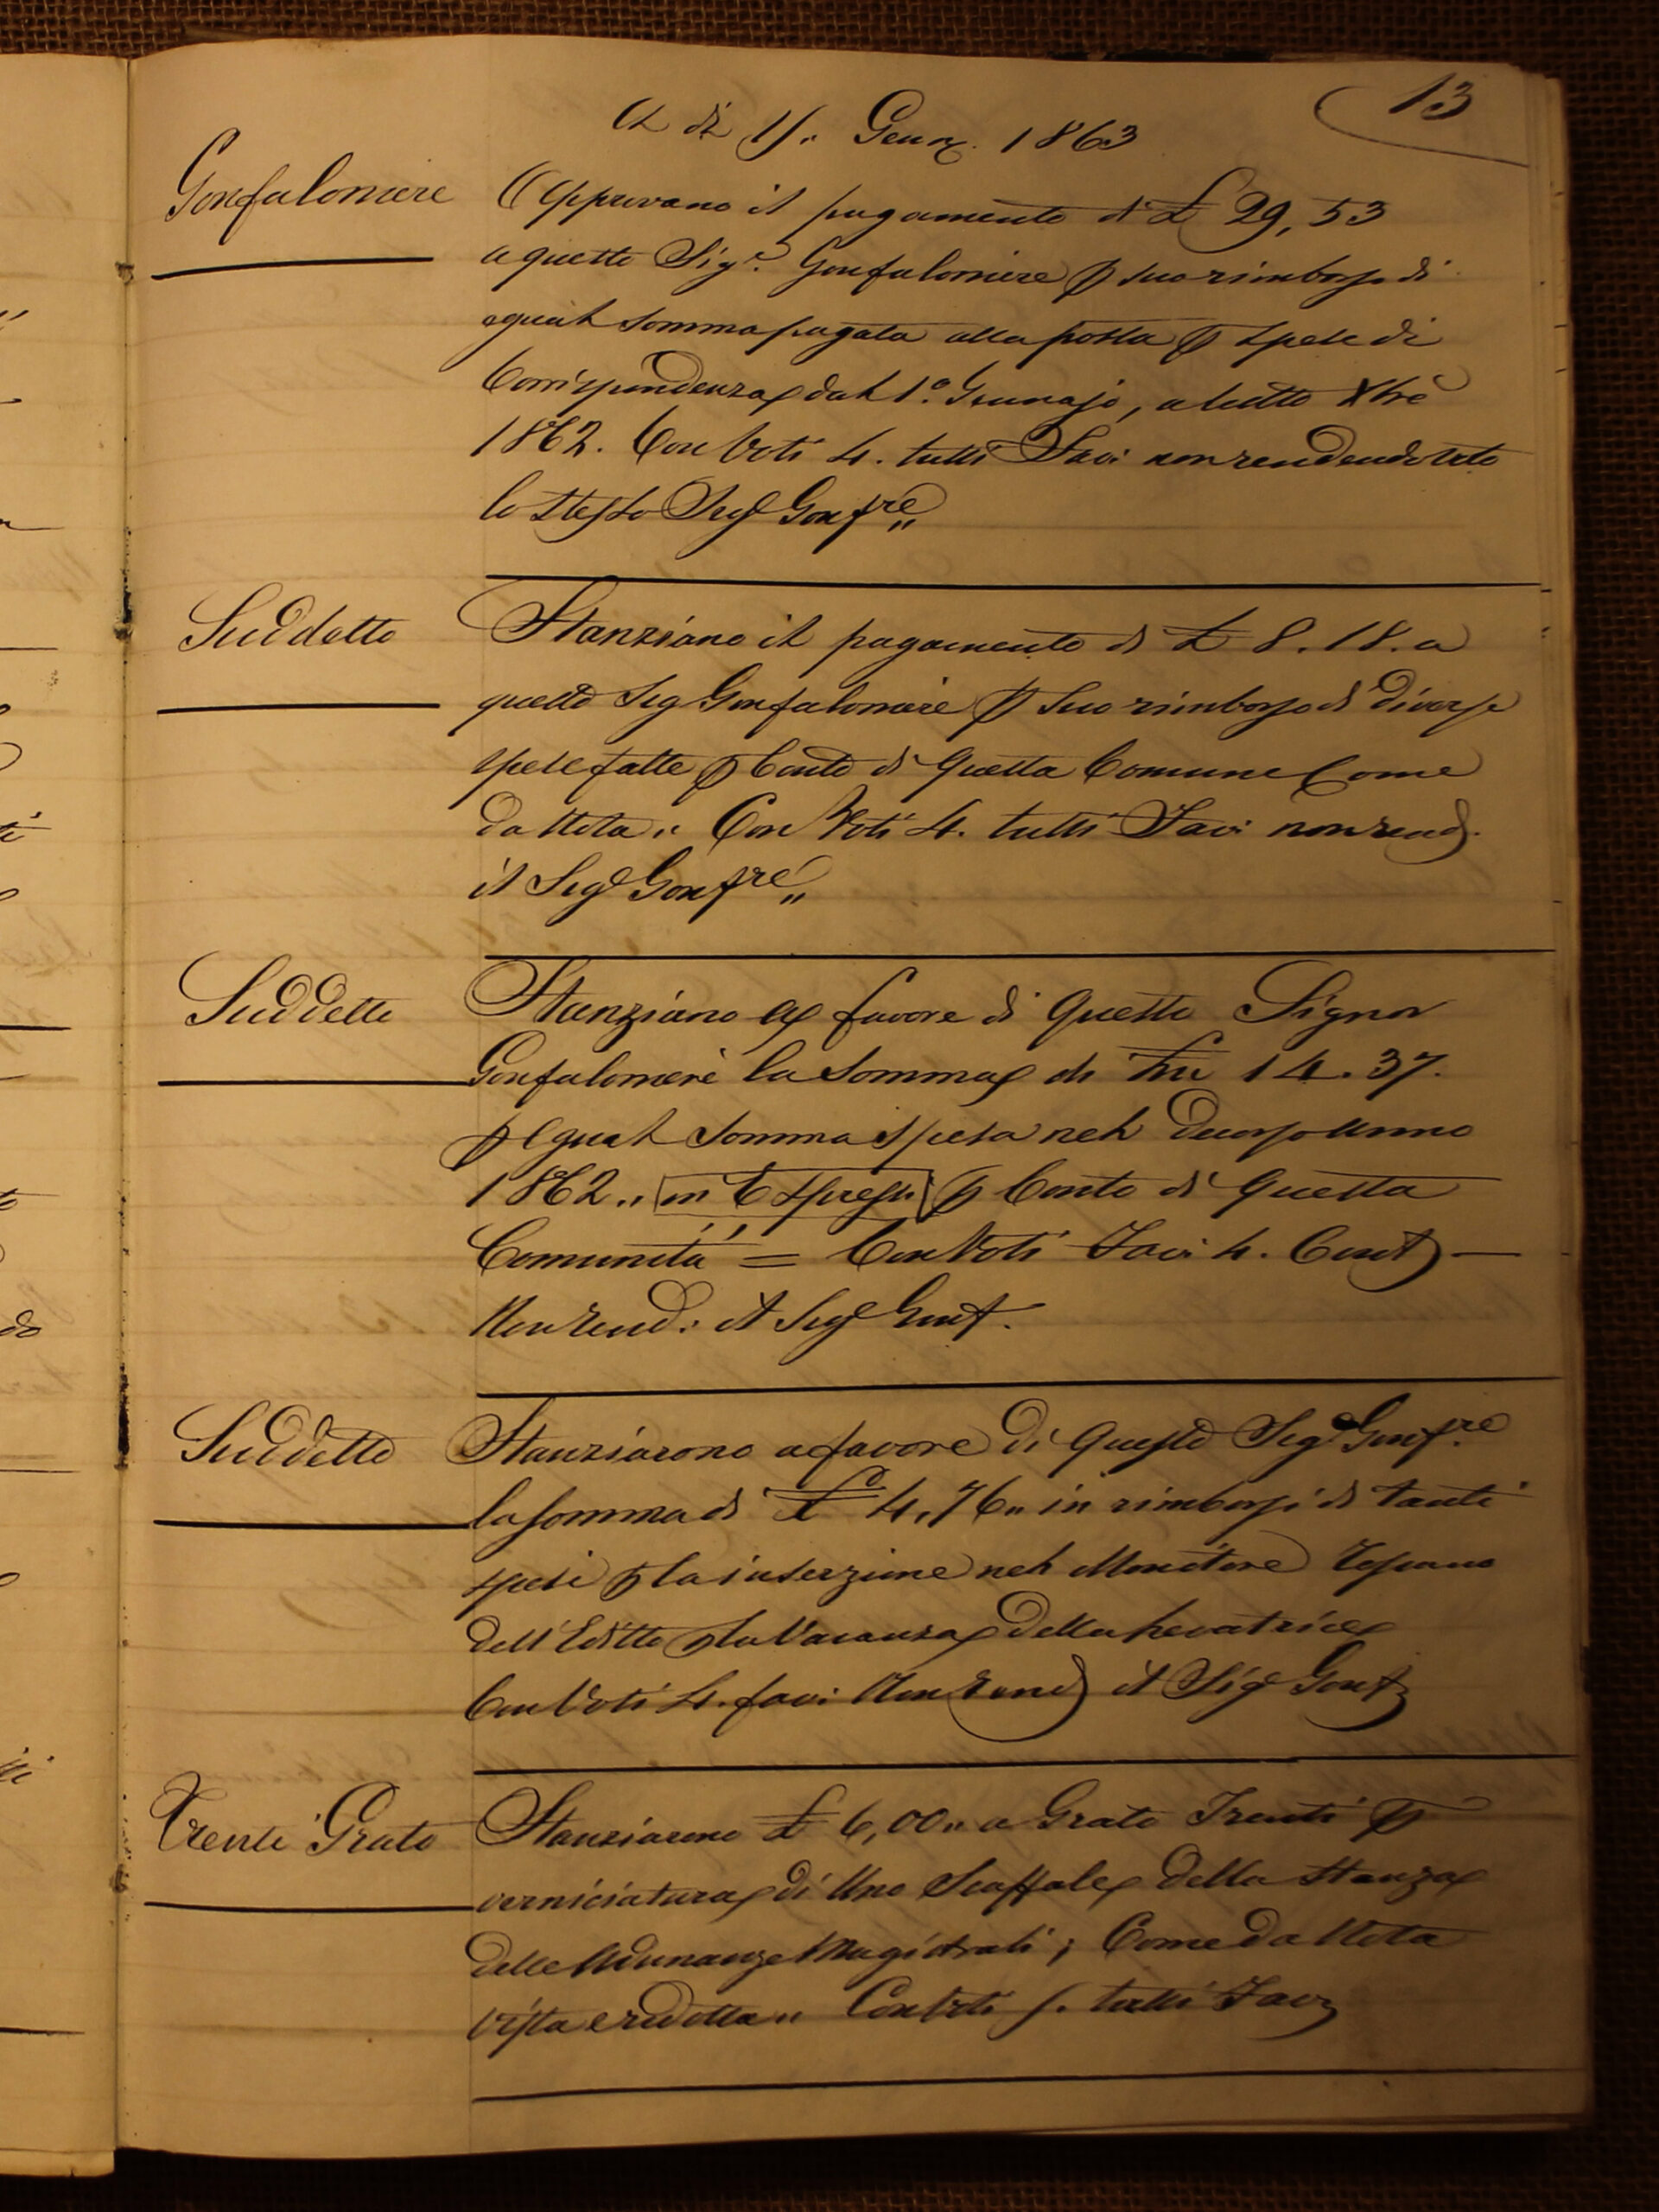 13
A dì 15. Genn. 1863
Gonfaloniere
Approvano il pagamento di £ 29,53
a questo Sigr. Gonfaloniere p suo rimborso di
egual somma pagata alla posta p spese di
Corrispondenza dal 1o. Gennajo, a tutto Xbre
1862. Con Voti 4. tutti Favi non rendendo voto
lo stesso Sig Gonfre„
Suddetto
Stanziano il pagamento di £ 8.18. a
questo Sig Gonfaloniere p suo rimborso di diverse
spese fatte p Conto di questa Comune Come
da Nota„ Con Voti 4. tutti Favi non rend.
il Sig Gonfre„
Suddetto
Stanziano a favore di questo Signor
Gonfaloniere la Somma di 14.37.
p egual somma spesa nel decorso anno
1862„ in Espressi p Conto di questa
Comunità = Con Voti Favi 4. Cont
Non rend: il Sig Gonf.
Suddetto
Stanziarono a favore di questo Sig Gonfre
la somma di £ 4,76„ in rimborsi di tanti
spesi p la inserzione nel Monitore Toscano
dell'Editto p la Vacanza della Levatrice
Con Voti 4. favi Non rend il Sig Gonf
Trenti Grato
Stanziarono £ 6,00„ a Grato Trenti p
verniciatura di Uno Scaffale della Stanza
delle Adunanze Magistrali; Come da Nota
vista e ridotta„ Con Voti 5. tutti Favi